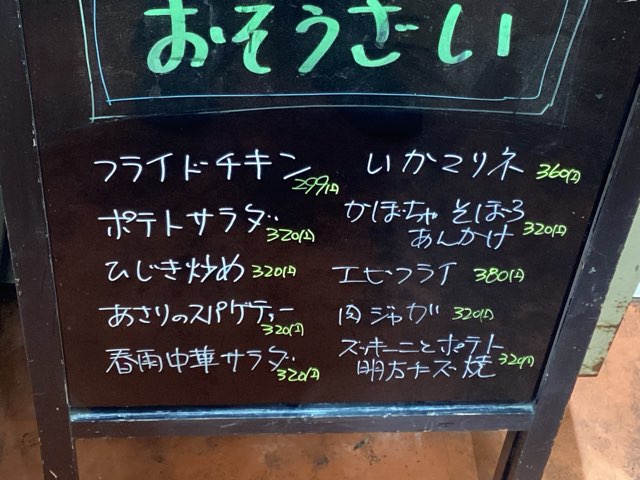 おそうざい
フライドチキン 299円
ポテトサラダ 320円
ひじき炒め 320円
あさりのスパゲティー 320円
春雨中華サラダ 320円
いかマリネ 360円
かぼちゃそぼろ
あんかけ 320円
エビフライ 380円
肉ジャガ 320円
ズッキーニとポテト
明太チーズ焼 320円